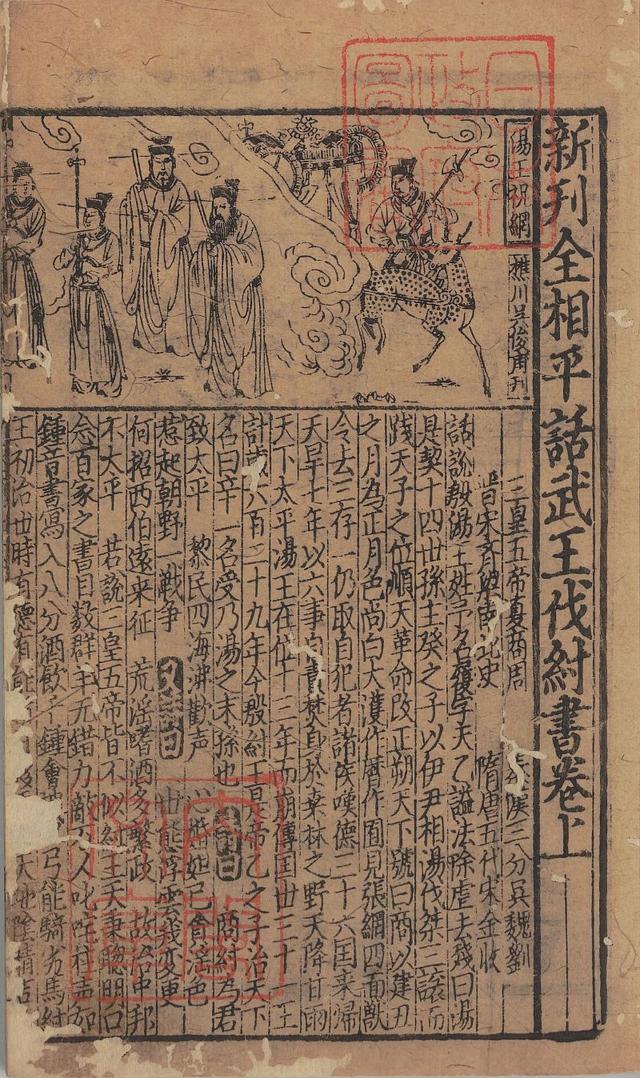 新刊全相平話武王伐紂書卷上
湯王祝網
樵川吳俊甫刊
三皇五帝夏商周 秦漢三分吳魏劉
晋宋齊梁南北史 隋唐五代宋金收
話說殷湯王姓子名履字天乙謚法除虐去残曰湯
是契十四世孫主癸之子以伊尹相湯伐桀三讓而
践天子之位順天革命改正朔天下號曰商以建丑
之月為正月色尚白大濩作厝作囿見張網四面獸
令去三存一仍取自犯者諸侯嘆德三十六国來歸
天旱七年以六事自責焚身於桒林之野天降甘雨
天下太平湯王在位十三年而崩傳国廿三十一主
計歳六百二十九年今殷紂王是帝乙之子治天下
名曰辛一名受乃湯之末孫也 詩曰 商紂為君
致太平 黎民四海沸歡声 妲己貪淫色
惹起朝野一戦争 又詩曰 世態浮雲幾变更
何招西伯遠来征 荒淫嗜酒多繁政 故治中邦
不太平 若說三皇五帝皆不似紂王天秉聰明口
念百家之書目数群羊无錯力敵万人叱咤声如
鍾音書寫入八分酒飲千鍾會 弓能騎劣馬紂
王初治世時有德有能 天地陰